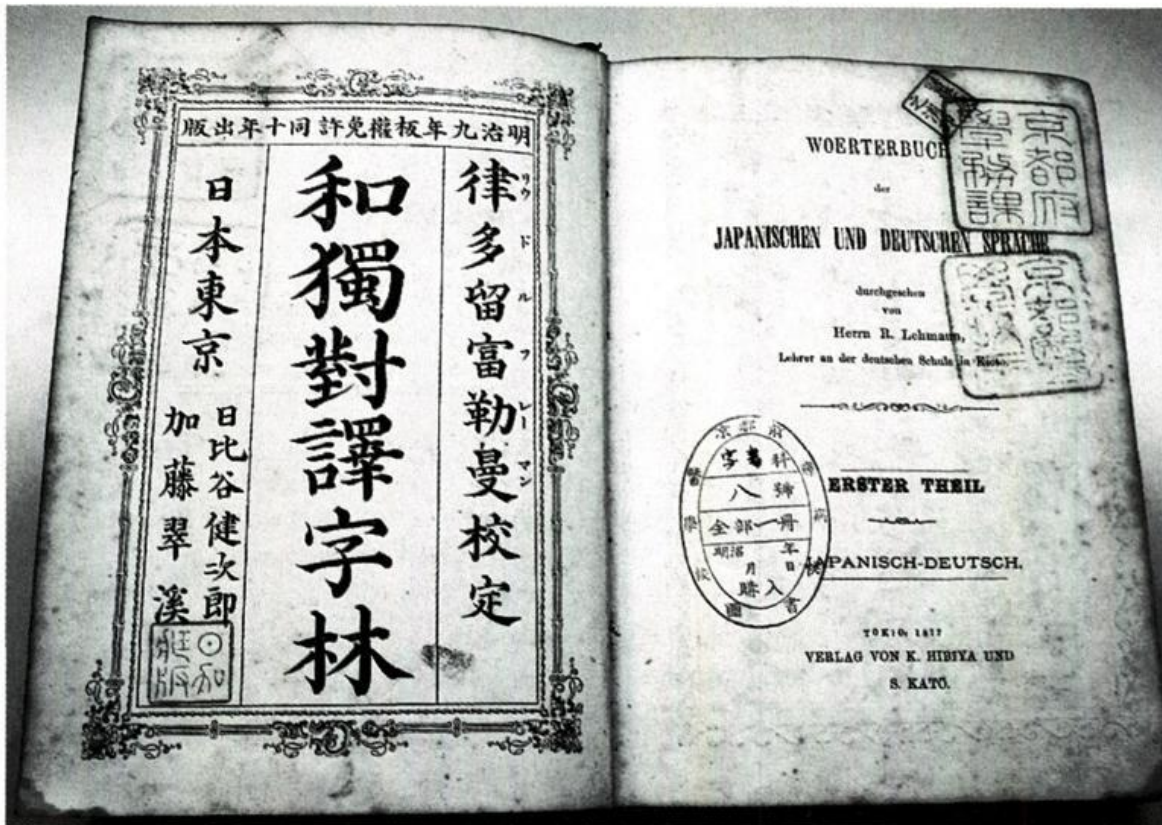 明治九年板權免許同十年出版
律多留富勒曼校定
リウドルフレーマン
和獨對譯字林
日本東京
日比谷健次郎
加藤翠溪
WOERTERBUCH
der
JAPANISCHEN UND DEUTSCHEN SPRACHE
durchgesehen
von
Herrn R. Lehmann,
Lehrer an der deutschen Schule in Kioto.
ERSTER THEIL
JAPANISCH-DEUTSCH.
TOKIO: 1877
VERLAG VON K. HIBIYA UND
S. KATÒ.
京都府
學務課
八號
全部一冊
明治 年
月 日
購入